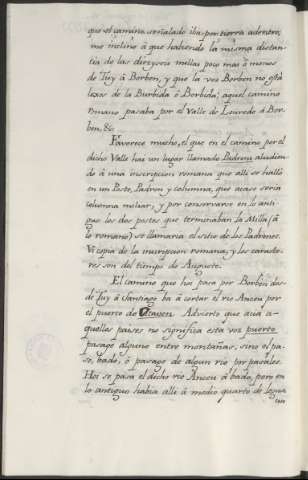 que el camino señalado iba por tierra adentro,
me inclino á que habiendo la misma distan-
tia de las diezyseis millas poco mas ó menos
de Tuy á Borben, y que la voz Borben no está
lexos de la Burbida ó Borbida; aquel camino
Rmano pasaba por el Valle de Louredo á Bor-
ben, &c.
Favorece mucho, el que en el camino por el
dicho Valle hay un lugar llamado Padron aludien-
do á una inscripcion romana que alli se halló
en un Poste, Padron y columna, que acaso seria
columna miliar; y por conservarse en lo anti-
guo los dos postes que terminaban la Milla (á
lo romano) se llamaria el sitio de los Padrones.
Vi copia de la inscripcion romana, y los caracte-
res son del tiempo de Auguste.
El camino que hoi pasa por Borben des-
de Tuy á Santiago bá á cortar el rio Anceu por
el puerto de Advierto que acia a-
quellos paises no significa esta voz puerto
pasage alguno entre montañas, sino el pa-
so, bado, ó pasage de algun rio por pasales.
Hoi se pasa el dicho rio Anceu á bado, pero en
lo antiguo habia alli á medio quarto de legua